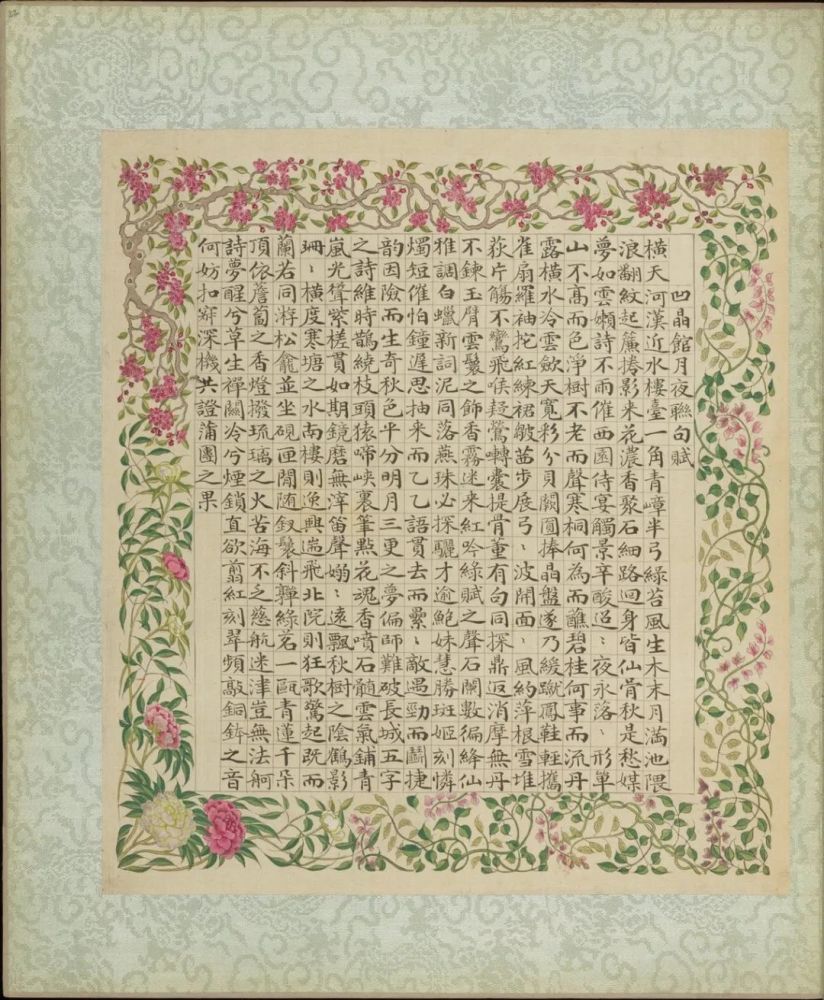 凹晶館月夜聯句賦
橫天河漢近水樓臺一角青嶂半弓綠苔風生木末月滿池隈
浪翻紋起簾捲影來花濃香聚石細路迴身皆仙骨秋是愁媒
夢如雲嬾詩不雨催西園侍宴觸景辛酸迢〻夜永落〻形單
山不高而色淨樹不老而聲寒桐何為而蘸碧桂何事而流丹
露橫水冷雲歛天寬彩分貝闕圓捧晶盤遂乃緩蹴鳳鞋輕攜
雀扇羅袖拕紅練裙皺茜步展弓〻波開面〻風約萍根雪堆
荻片觴不驚飛喉疑鶯囀囊提骨董有句同探鼎返消摩無丹
不鍊玉臂雲鬟之飾香霧迷來紅吟綠賦之聲石闌數徧絳仙
雅調白蠟新詞泥同落燕珠必探驪才逾鮑妹慧勝班姬刻憐
燭短催怕鐘遲思抽來而乙乙語貫去而纍〻敵遇勁而鬭捷
韵因險而生奇秋色平分明月三更之夢偏師難破長城五字
之詩維時鵲繞枝頭猿啼峽裏筆點花魂香噴石髓雲氣鋪青
嵐光聳紫槎貫如期鏡磨無滓笛聲嫋〻遠飄秋樹之陰鶴影
珊〻橫度寒塘之水南樓則逸興遄飛北院則狂歌驚起既而
蘭若同游松龕並坐硯匣閒随釵鬟斜嚲綠茗一甌青蓮千朵
頂依薝蔔之香燈撥琉璃之火苦海不乏慈航迷津豈無法舸
詩夢醒兮草生禪關冷兮煙鎖直欲翦紅刻翠頻敲銅鉢之音
何妨扣寂深機共證蒲團之果